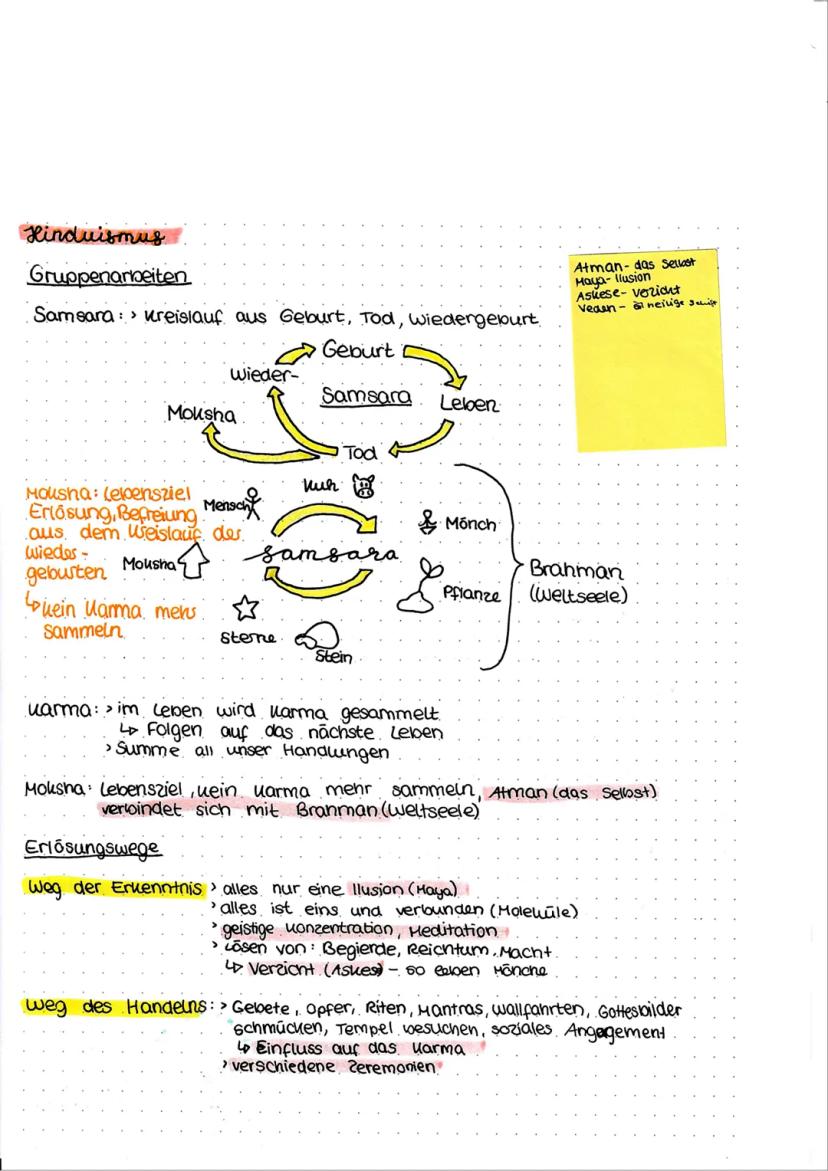 Hinduismus
Gruppenarbeiten
Atman- das Selbst
Maya- Ilusion
Askese- Verzicht
Veden- heilige Schrift
Samsara: > Kreislauf aus Geburt, Tod, Wiedergeburt
Geburt
Wieder-
Samsara
Leben
Moksha
Tod
Kuh
Mensch
Mönch
Moksha: Lebensziel
Erlösung, Befreiung
aus dem Kreislauf der
Wieder-
geburten
Moksha
Samsara
Pflanze
Brahman
(Weltseele)
↳ kein Karma mehr
sammeln
Sterne
Stein
Karma: > im Leben wird Karma gesammelt
↳ Folgen auf das nächste Leben
> Summe all unser Handlungen
Moksha: Lebensziel, kein Karma mehr sammeln, Atman (das Selbst)
verbindet sich mit Brahman (Weltseele)
Erlösungswege
Weg der Erkenntnis > alles nur eine Ilusion (Maya)
> alles ist eins und verbunden (Moleküle)
> geistige Konzentration, Meditation
> Lösen von: Begierde, Reichtum, Macht
↳ Verzicht (Askese) - so leben Mönche
Weg des Handelns: > Gebete, Opfer, Riten, Mantras, Wallfahrten, Gottesbilder
schmücken, Tempel besuchen, soziales Angagement
↳ Einfluss auf das Karma
> verschiedene Zeremonien